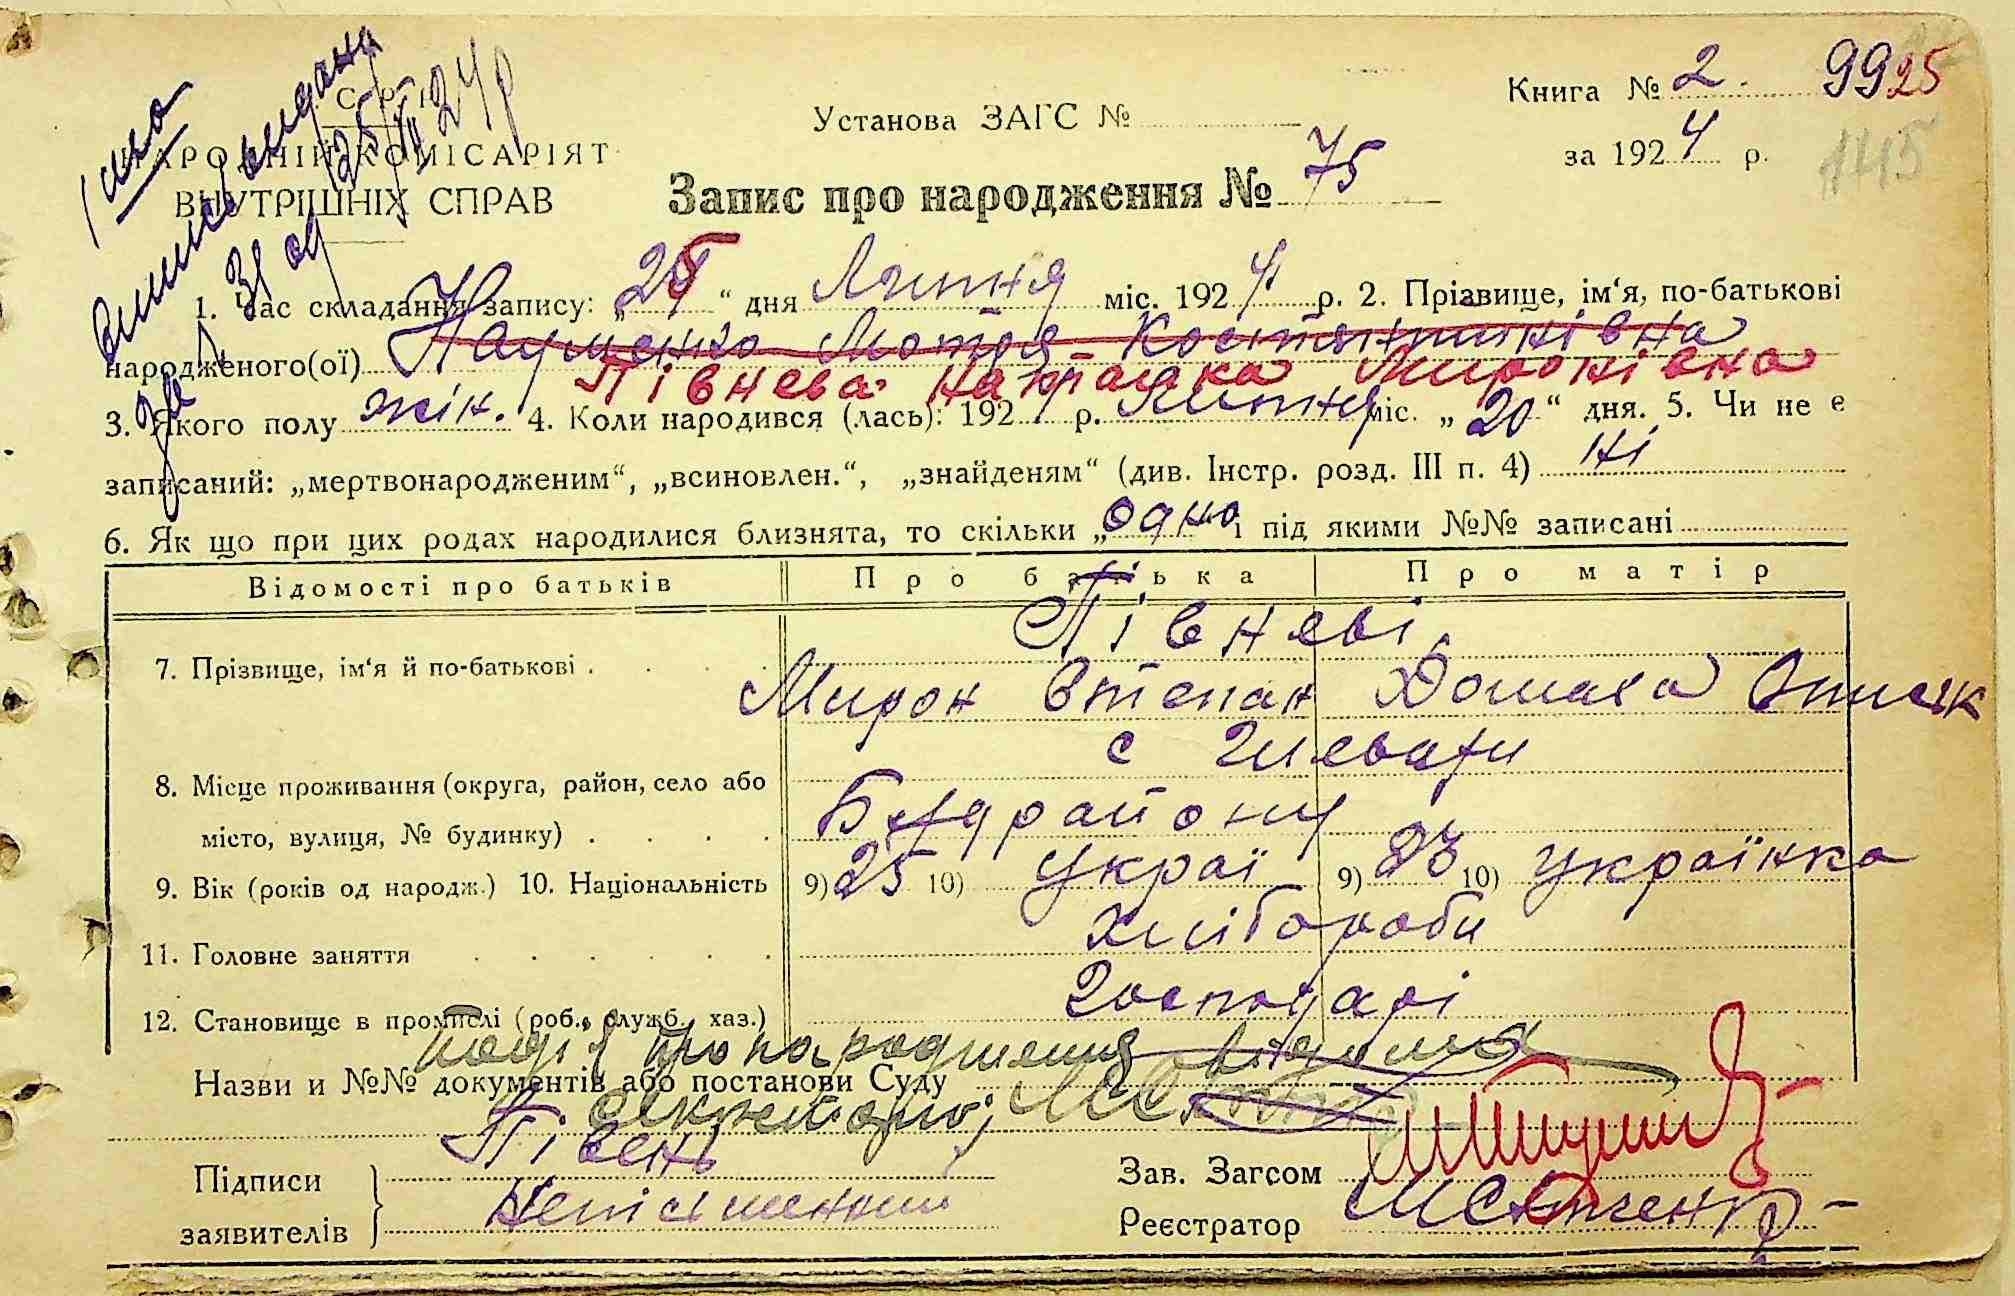 Книга № 2. 9925
Установа ЗАГС №
за 1924 р.
145
НАРОДНІЙ КОМІСАРІЯТ
ВНУТРІШНІХ СПРАВ
Запис про народження № 75
1. Час складання запису: „25“ дня Липня міс. 1924 р. 2. Прізвище, ім‘я, по-батькові
народженого(ої) Науменко Мотря Костянтинівна
Півнева Мироківна
3. Якого полу жін. 4. Коли народився (лась): 1924 р. Липня міс. „20“ дня. 5. Чи не є
записаний: „мертвонародженим“, „всиновлен.“, „знайденям“ (див. Інстр. розд. III п. 4) ні
6. Як що при цих родах народилися близнята, то скільки „одно“ і під якими №№ записані
Відомості про батьків Про батька Про матір
Півневі
7. Прізвище, ім‘я й по-батькові
Мирон Степан Домаха
с Глеваги
8. Місце проживання (округа, район, село або
місто, вулиця, № будинку) Буд району
9. Вік (років од народж.) 10. Національність 9) 25 10) Украї 9) 23 10) Українка
11. Головне заняття Хлібороби
12. Становище в промислі (роб., служб., хаз.) Господарі
Подія про народження відома
Назви и №№ документів або постанови Суду
Півень
Підписи
заявителів Неписьменний
Зав. Загсом
Реєстратор